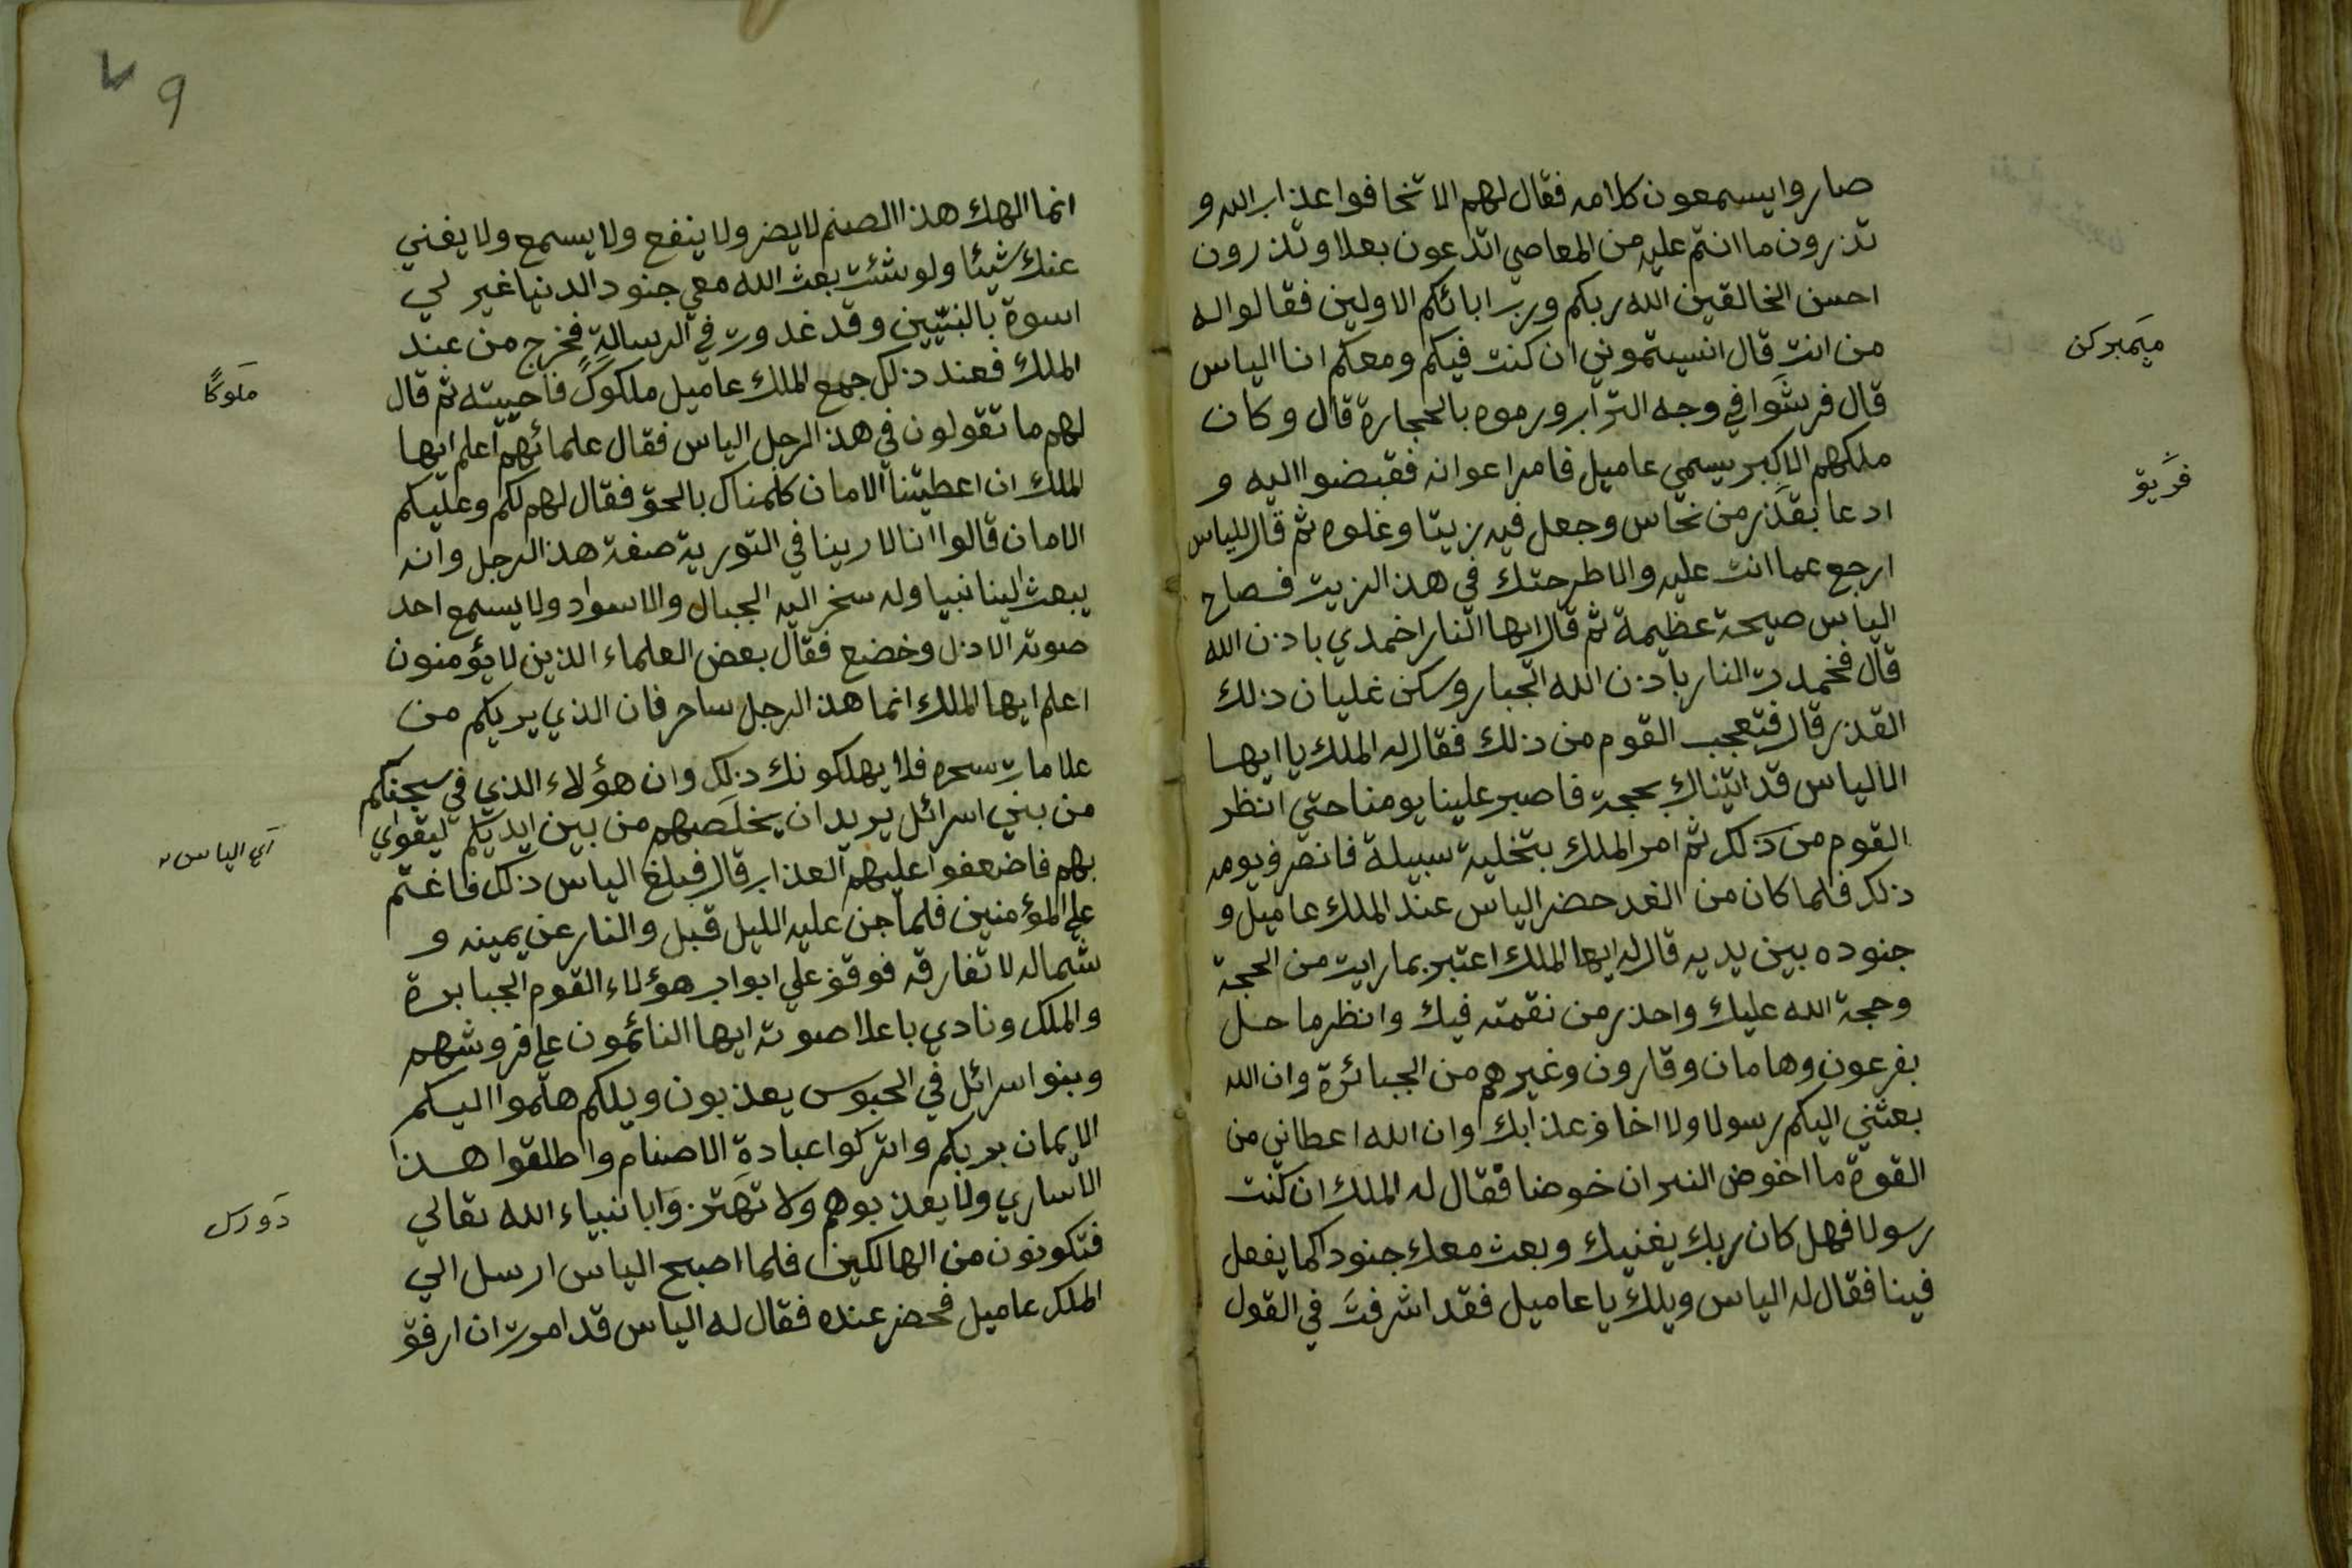 صاروا يسمعون كلامه فقال لهم الا تخافوا عذاب الله و
تذرون ما انتم عليه من المعاصي اتدعون بعلا وتذرون
احسن الخالقين الله ربكم ورب ابائكم الاولين فقالوا له
من انت قال انسيتموني ان كنت فيكم ومعكم انا الياس
قال فرشوا في وجه التراب ورموه بالحجارة قال وكان
ملكهم الاكبر يسمي عاميل فامر اعوانه فقبضوا اليه و
ادعا بقذر من نحاس وجعل فيه زيتا وغلوه ثم قال للياس
ارجع عما انت عليه والا طرحتك في هذ الزيت فصاح
الياس صيحة عظيمة ثم قال ايها النار اخمدي باذن الله
قال فخمدت النار باذن الله الجبار وسكن غليان ذلك
القذر قال فتعجب القوم من ذلك فقال له الملك يا ايها
الالياس قد اتيناك بحجة فاصبر علينا يومنا حتي انظر
القوم من ذلك ثم امر الملك بتخلية سبيلة فانصرف يومه
ذلك فلما كان من الغد حضر الياس عند الملك عاميل و
جنوده بين يديه قال له ايها الملك اعتبر بما رايت من الحجة
وحجة الله عليك واحذر من نقمته فيك وانظر ما حل
بفرعون وهامان وقارون وغيرهم من الجبائرة وان الله
بعثني اليكم رسولا ولا اخاف عذابك وان الله اعطاني من
القوة ما اخوض النيران خوضا فقال له الملك ان كنت
رسولا فهل كان ربك يغنيك وبعث معك جنودا كما يفعل
فينا فقال له الياس ويلك يا عاميل فقد اشرفت في القول
ميمبركن
فريق
٧٩
انما الهك هذا الصنم لا يضر ولا ينفع ولا يسمع ولا يغني
عنك شيئا ولو شئت بعث الله معي جنود الدنيا غير لي
اسوة بالنبيين وقد غدوت في الرسالة فخرج من عند
الملك فعند ذلك جمع الملك عاميل ملكوك فاحيته ثم قال
لهم ما تقولون في هذ الرجل الياس فقال علمائهم اعلم ايها
الملك ان اعطيتنا الامان كلمناك بالحق فقال لهم لكم وعليكم
الامان قالوا انا لارينا في التورية صفة هذ الرجل وانه
يبعث الينا نبيا وله سخر اليه الجبال والاسواد ولا يسمع احد
صوته الا ذل وخضع فقال بعض العلماء الذين لا يؤمنون
اعلم ايها الملك انما هذ الرجل ساحر فان الذي يريكم من
علامات سحره فلا يهلكونك ذلك وان هؤلاء الذي في سجنكم
من بني اسرائل يريد ان يخلصهم من بين ايديكم ليقواي
بهم فاضعفوا عليهم العذاب قال فبلغ الياس ذلك فاغتم
علي المؤمنين فلما جن عليه الليل قبل والنار عن يمينه و
شماله لا تفارقه فوقف علي ابواب هؤلاء القوم الجبابرة
والملك ونادي باعلا صوته ايها النائمون علي فروشهم
وبنوا اسرائل في الحبوس يعذبون ويلكم هلموا اليكم
الايمان بربكم واتركوا عبادة الاصنام واطلقوا هذا
الاساري ولا يعذبوهم ولا تهتزوا بانبياء الله تعالي
فتكونون من الهالكين فلما اصبح الياس ارسل الي
الملك عاميل فحضر عنده فقال له الياس قد امرت ان ارفق
ملوكا
اي الياس
دورس